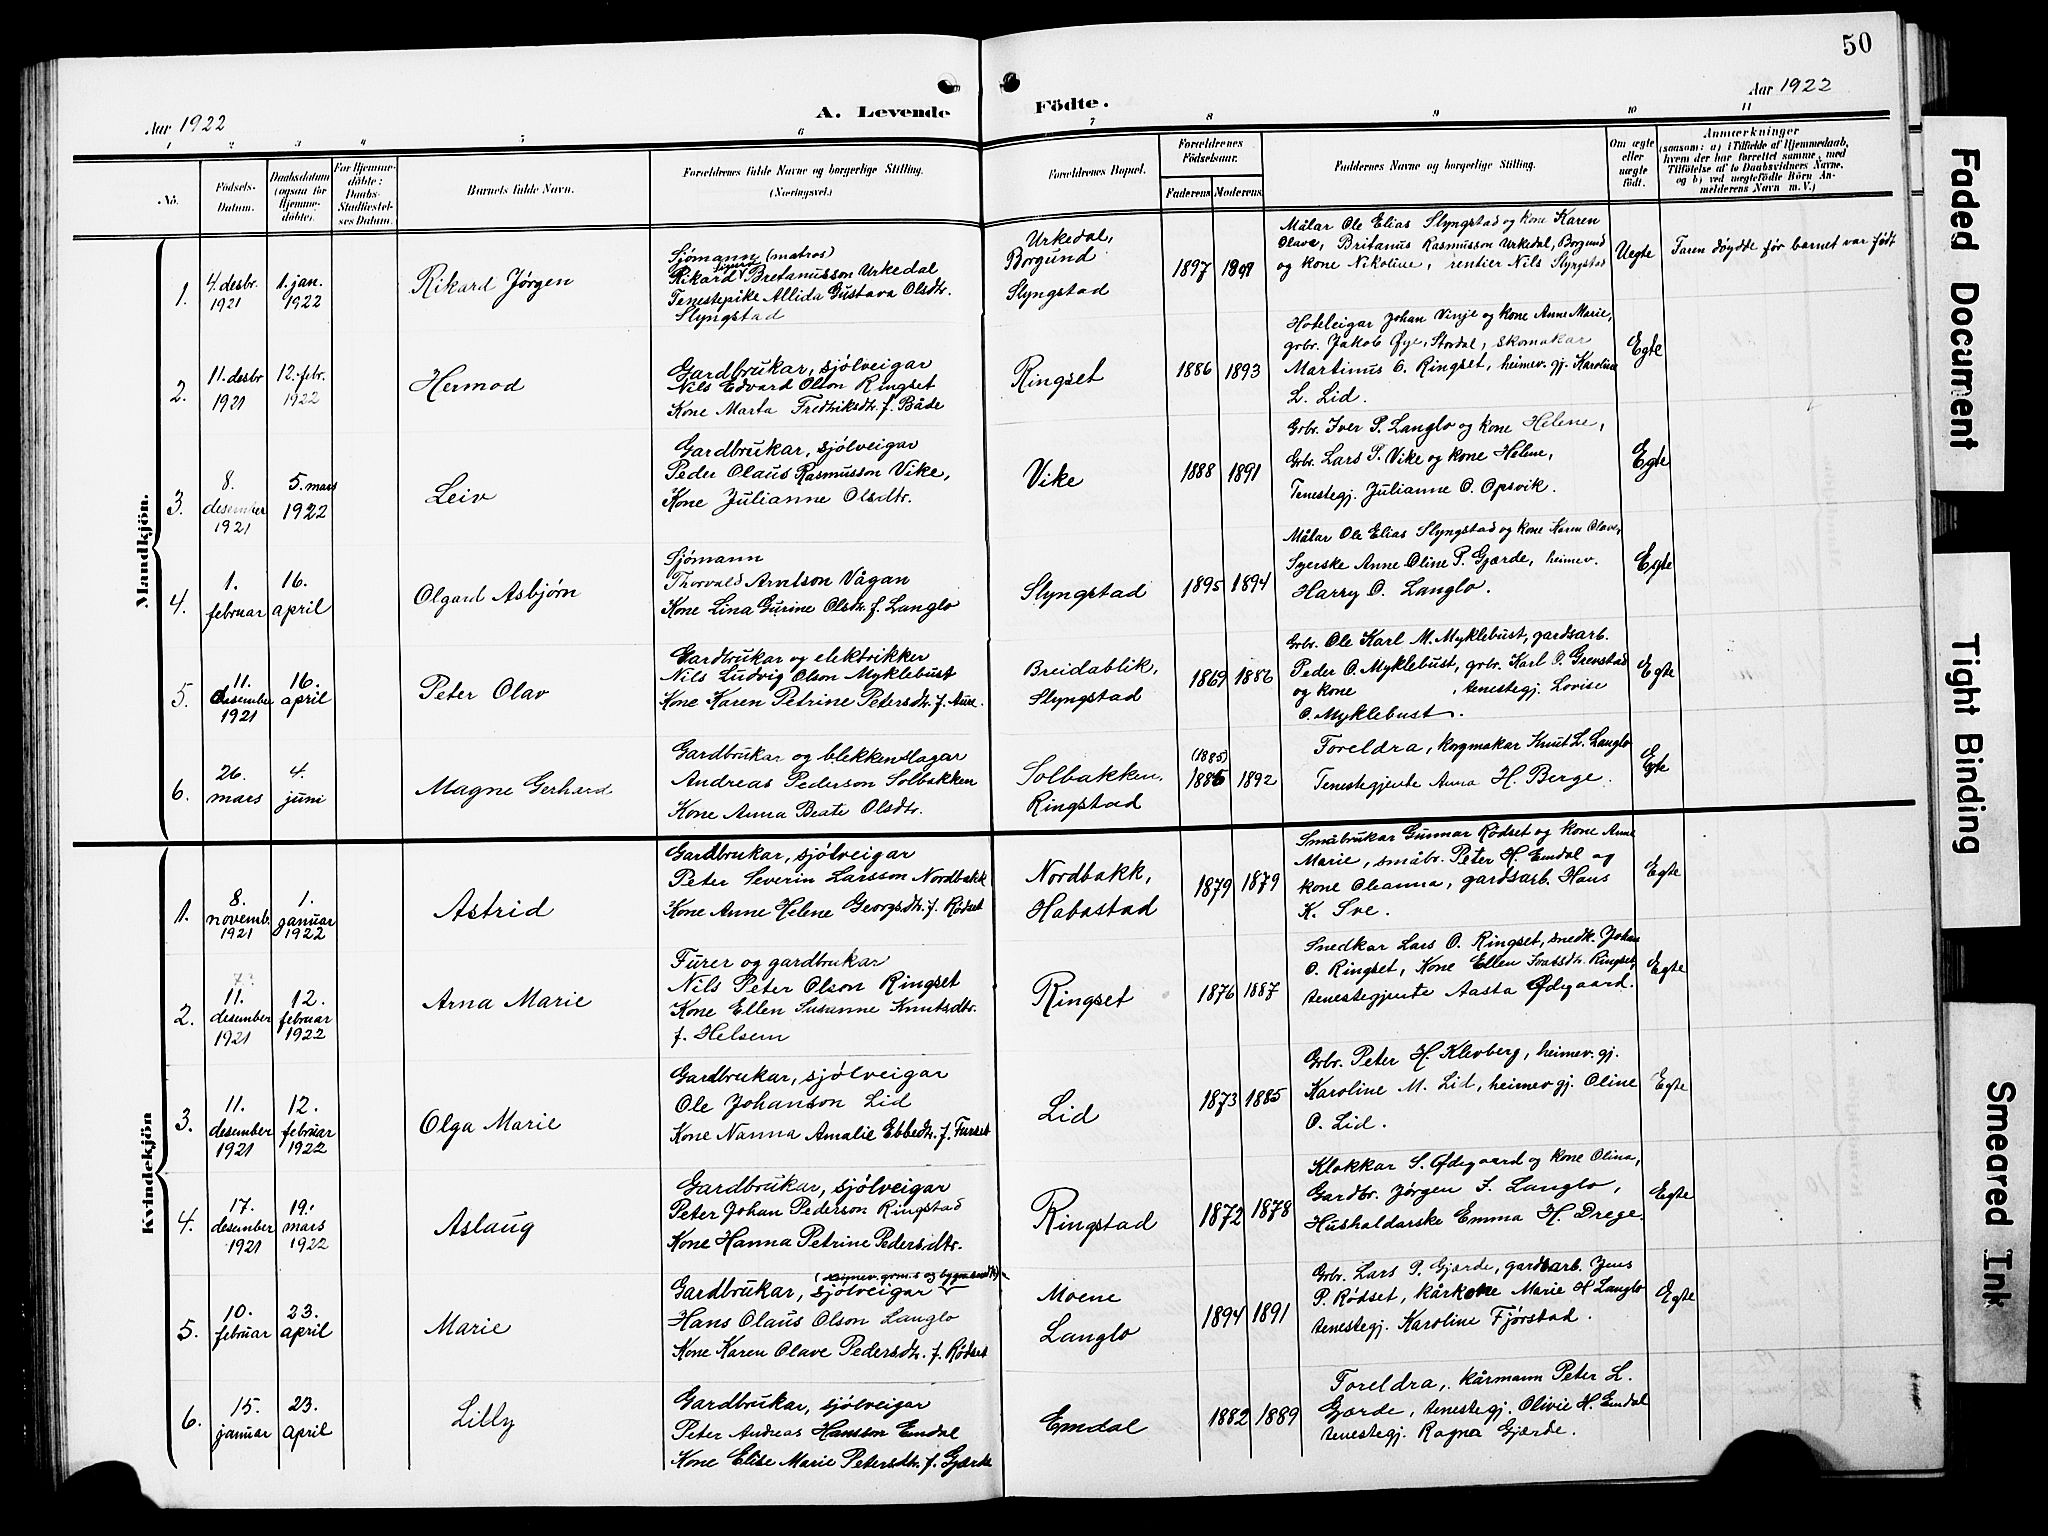 50
Aar 1922
A. Levende Födte.
Aar 1922
1 2 3 4 5 6 7 8 9 10 11
No.
Födsels-
Datum.
Daabsdatum
(ogsaa for
Hjemme-
döbte).
For Hjemme-
döbte:
Daabs-
Stadfæstel-
ses Datum.
Barnets fulde Navn.
Forældrenes fulde Navne og borgerlige Stilling.
(Næringsvei.)
Forældrenes Bopæl.
Forældrenes
Födselsaar.
Faderens
Moderens
Faddernes Navne og borgerlige Stilling.
Om ægte
eller
uægte
født.
Anmærkninger
(saasom: a) i Tilfælde af Hjemmedaab,
hvem der har forrettet samme, med
Tilföielse af to Daabsvidners Navne,
og b) ved uægtefödte Börn An-
melderens Navn m. V.)
Mandkjön.
1.
4. desbr.
1921
1. jan.
1922
Rikard Jørgen
Sjømann (matros)
Rikard Bretanusson Urkedal
Tenestepike Allida Gustava Olsdtr.
Slyngstad
Urkedal,
Borgund
Slyngstad
1897
Målar Ole Elias Slyngstad og kone Karen
Olava, Britanus Rasmusson Urkedal, Borgund
og kone Nikoline, rentier Nils Slyngstad
Uegte
Faren døydde før barnet var født
2.
11. desbr
1921
12. febr.
1922
Hermod
Gardbrukar, sjølveigar
Nils Edvard Olson Ringset
Kone Marta Fredriksdtr. f. Både
Ringset
1886 1893
Hoteleigar Johan Vinje og kone Anne Marie,
grbr. Jakob Øye, Stordal, skomakar
Martinus O. Ringset, heimev. gj. Karoline
L. Lid.
Egte
3.
8.
desember
1921
5. mars
1922
Leiv
Gardbrukar, sjølveigar
Peder Olaus Rasmusson Vike,
Kone Julianne Olsdtr.
Vike
1888 1891
Grbr. Iver P. Langlo og kone Helene,
Grbr. Lars P. Vike og kone Helene,
Tenestegj. Julianne O. Opsvik.
Egte
4.
1.
februar
16.
april
Olgard Asbjørn
Sjømann
Thorvald Arntson Vågan
Kone Lina Gurine Olsdtr. f. Langlo
Slyngstad
1895 1894
Målar Ole Elias Slyngstad og kone Karen Olave,
Syerske Anne Oline P. Gjærde, heimev.
Harry O. Langlo.
Egte
5.
11.
desember
1921
16.
april
Peter Olav
Gardbrukar og elektrikker
Nils Ludvig Olson Myklebust
Kone Karen Petrine Petersdtr. f. Aure.
Breidablik,
Slyngstad
1869 1886
Grbr. Ole Karl M. Myklebust, gardsarb.
Peder O. Myklebust, grbr. Karl O. Grevstad
og kone , tenestegj. Lovise
O. Myklebust.
Egte
6.
26.
mars
4.
juni
Magne Gerhard
Gardbrukar og blekkenslagar
Andreas Pederson Solbakken
Kone Anna Beate Olsdtr.
Solbakken,
Ringstad
(1885)
1886 1892
Foreldra, korgmakar Knut L. Langlo
Tenestegjente Anna H. Berge.
Egte
Kvindekjön
1.
8.
novemb.
1921
1.
januar
1922
Astrid
Gardbrukar, sjølveigar
Peter Severin Larsson Nordbakk
Kone Anne Helene Georgsdtr. f. Rødset
Nordbakk,
Habostad
1879 1879
Småbrukar Gunnar Rødset og kone Anne
Marie, småbr. Peter H. Emdal og
kone Oleanna, gardsarb. Hans
K. Sve.
Egte
2.
11.
desember
1921
12.
februar
1922
Arna Marie
Furer og gardbrukar
Nils Peter Olson Ringset
Kone Ellen Susanne Knutsdtr.
f. Helsem
Ringset
1876 1887
Snedkar Lars O. Ringset, snedk. Johan
O. Ringset, Kone Ellen Ivarsdtr. Ringset,
tenestegjente Aasta Ødegaard.
Egte
3.
11.
desember
1921
12.
februar
1922
Olga Marie
Gardbrukar, sjølveigar
Ole Johanson Lid
Kone Nanna Amalie Ebbedtr. f. Furset
Lid
1873 1885
Grbr. Peter H. Klevberg, heimev. gj.
Karoline M. Lid, heimev. gj. Oline
O. Lid.
Egte
4.
17.
desember
1921
19.
mars
1922
Aslaug
Gardbrukar, sjølveigar
Peter Johan Pederson Ringstad
Kone Hanna Petrine Pedersdtr.
Ringstad
1872 1878
Klokkar S. Ødegaard og kone Olina,
Gardbr. Jørgen I. Langlo,
Hushaldarske Emma H. Drege.
Egte
5.
10.
februar
23.
april
Marie
Gardbrukar, sjølveigar
Hans Olaus Olson Langlo
Kone Karen Olave Pedersdtr. f. Rødset
Moene
Langlo
1894 1891
Grbr. Lars P. Gjærde, gardsarb. Jens
P. Rødset, kårkone Marie H Langlo
tenestegj. Karoline Fjørstad.
Egte
6.
15.
januar
23.
april
Lilly
Gardbrukar, sjølveigar
Peter Andreas Hansson Emdal
Kone Elise Marie Petersdtr. f. Gjærde
Emdal
1882 1889
Foreldra, kårmann Peter L.
Gjærde, tenestegj. Olivie H. Emdal
tenestegj. Ragna Gjærde.
Faded Document
Tight Binding
Smeared Ink